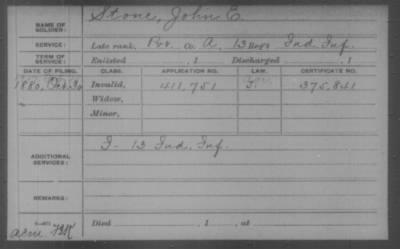 NAME OF SOLDIER: Stone, John E.
SERVICE: Late rank, Co. A, 13 Reg't Ind. Inf.
TERM OF SERVICE: Enlisted , 1 Discharged , 1
DATE OF FILING. CLASS. APPLICATION NO. LAW. CERTIFICATE NO.
1880, Invalid, 411,751 375,841
Widow,
Minor,
ADDITIONAL SERVICES: I - 13 Ind. Inf.
REMARKS:
Died , 1 , at